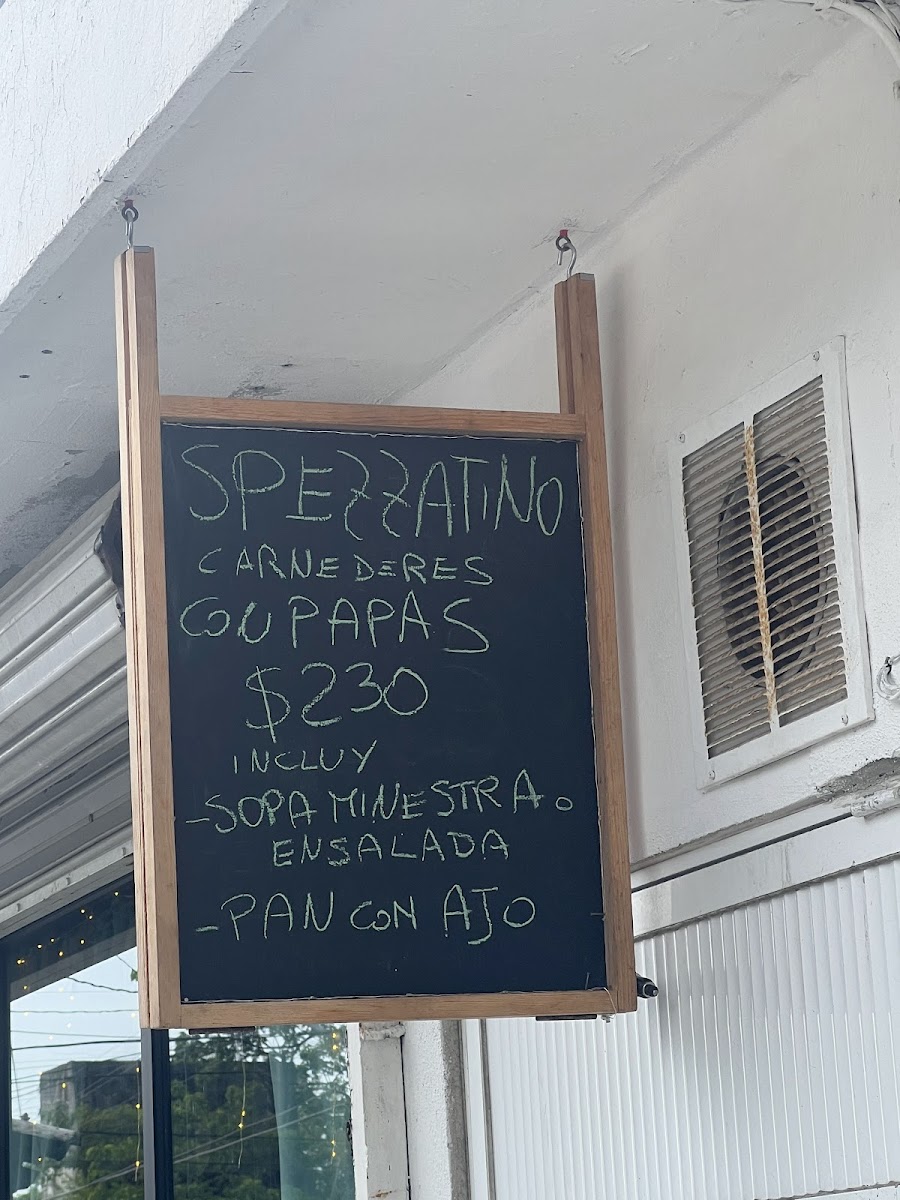 SPEZZATINO
CARNE DE RES
CON PAPAS
$230
INCLUY
-SOPA MINESTRA o
ENSALADA
-PAN CON AJO